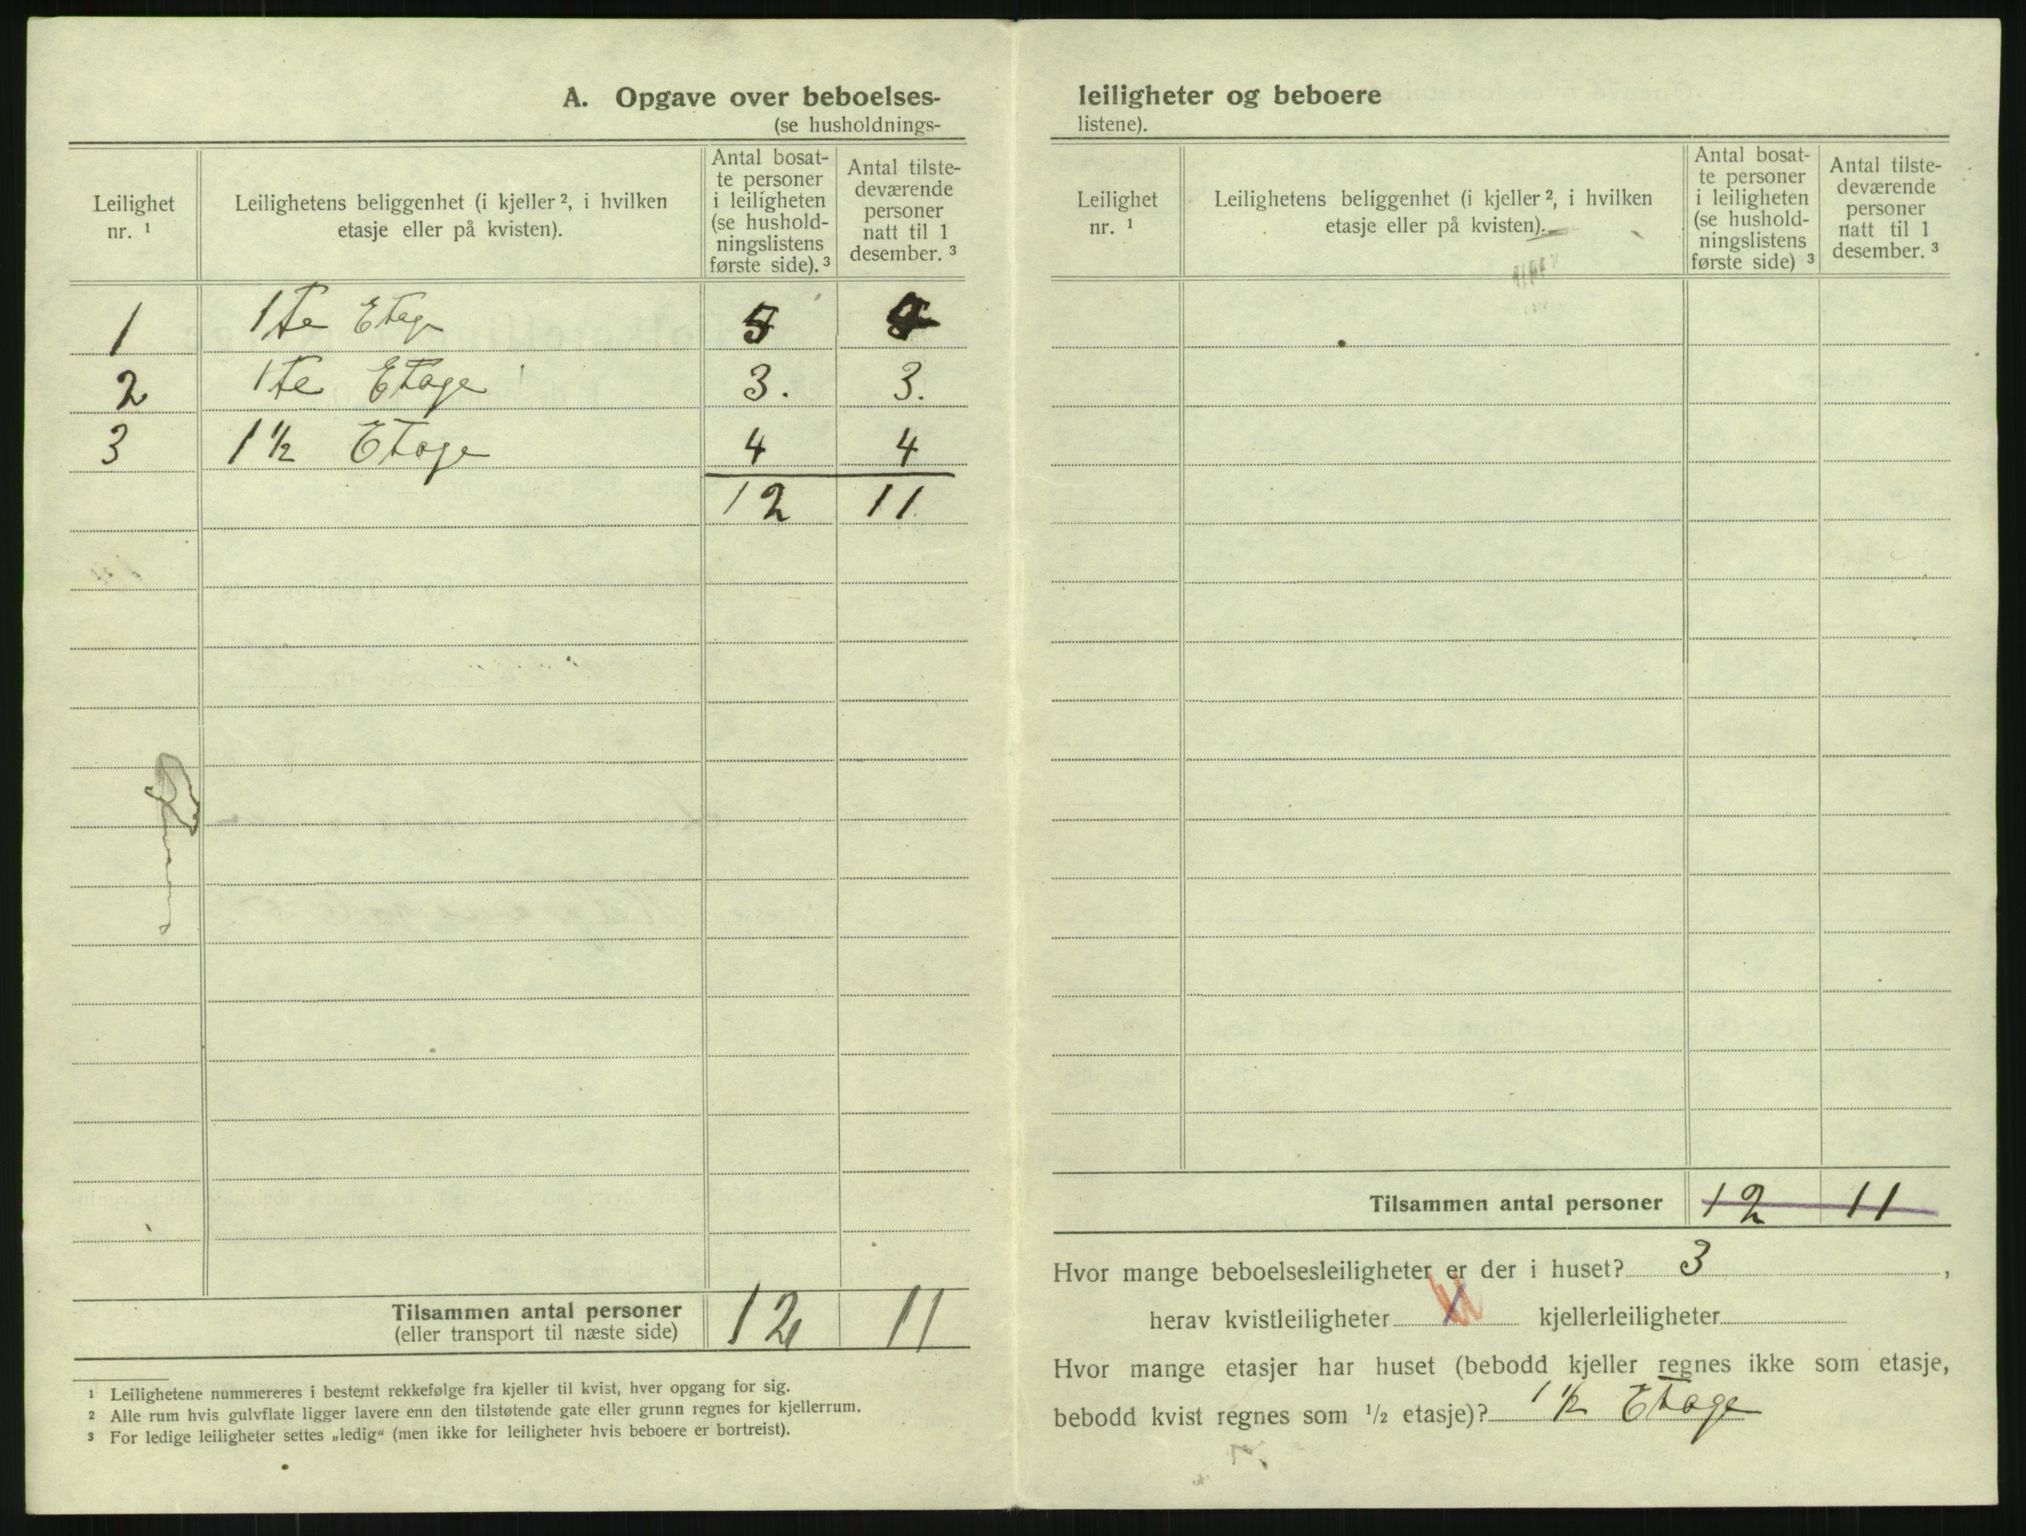 A. Opgave over beboelses-
(se husholdnings-
Leilighet nr. ¹
Leilighetens beliggenhet (i kjeller ², i hvilken etasje eller på kvisten).
Antal bosat-
te personer
i leiligheten
(se hushold-
ningslistens
første side). ³
Antal tilste-
deværende
personer
natt til 1
desember. ³
1 1ste Etag 5
2 1ste Etage 3. 3.
3 1 ½ Etage 4 4
12 11
Tilsammen antal personer
(eller transport til næste side) 12 11
¹ Leilighetene nummereres i bestemt rekkefølge fra kjeller til kvist, hver opgang for sig.
² Alle rum hvis gulvflate ligger lavere enn den tilstøtende gate eller grunn regnes for kjellerrum.
³ For ledige leiligheter settes „ledig“ (men ikke for leiligheter hvis beboere er bortreist).
leiligheter og beboere
listene).
Leilighet nr. ¹
Leilighetens beliggenhet (i kjeller ², i hvilken etasje eller på kvisten).
Antal bosat-
te personer
i leiligheten
(se hushold-
ningslistens
første side) ³
Antal tilste-
deværende
personer
natt til 1
desember. ³
Tilsammen antal personer 12 11
Hvor mange beboelsesleiligheter er der i huset? 3,
herav kvistleiligheter 1 kjellerleiligheter
Hvor mange etasjer har huset (bebodd kjeller regnes ikke som etasje,
bebodd kvist regnes som ½ etasje)? 1 ½ Etage